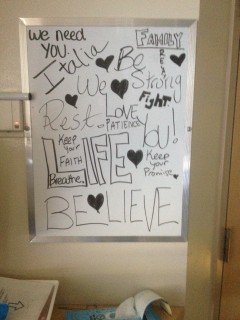 We need
YOU.
FAMILY
Italia
Be
Strong
We
Fight
Rest.
LOVE
PATIENCE
You!
Keep
your
FAITH
LIFE
Keep
your
Promise.
Breathe
BELIEVE